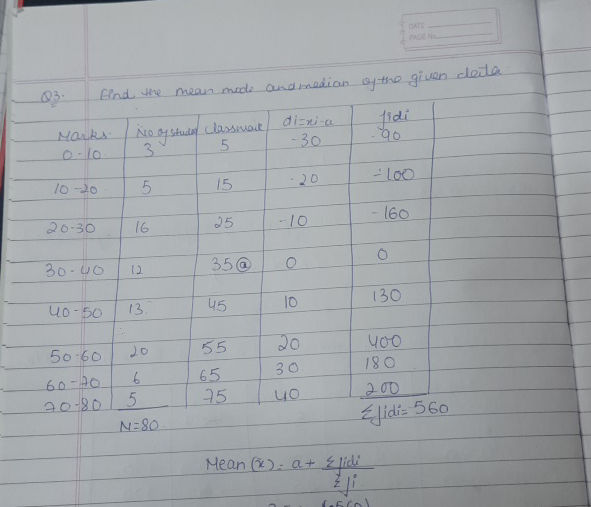 DATE
PAGE No.
Q3. Find the mean mode and median of the given data
Marks No of studen Classmark di=xi-a fidi
0-10 3 5 -30 -90
10-20 5 15 -20 -100
20-30 16 25 -10 -160
30-40 12 35 a 0 0
40-50 13 45 10 130
50-60 20 55 20 400
60-70 6 65 30 180
70-80 5 75 40 200
N=80 Σfidi=560
Mean (x) = a + Σfidi
Σfi